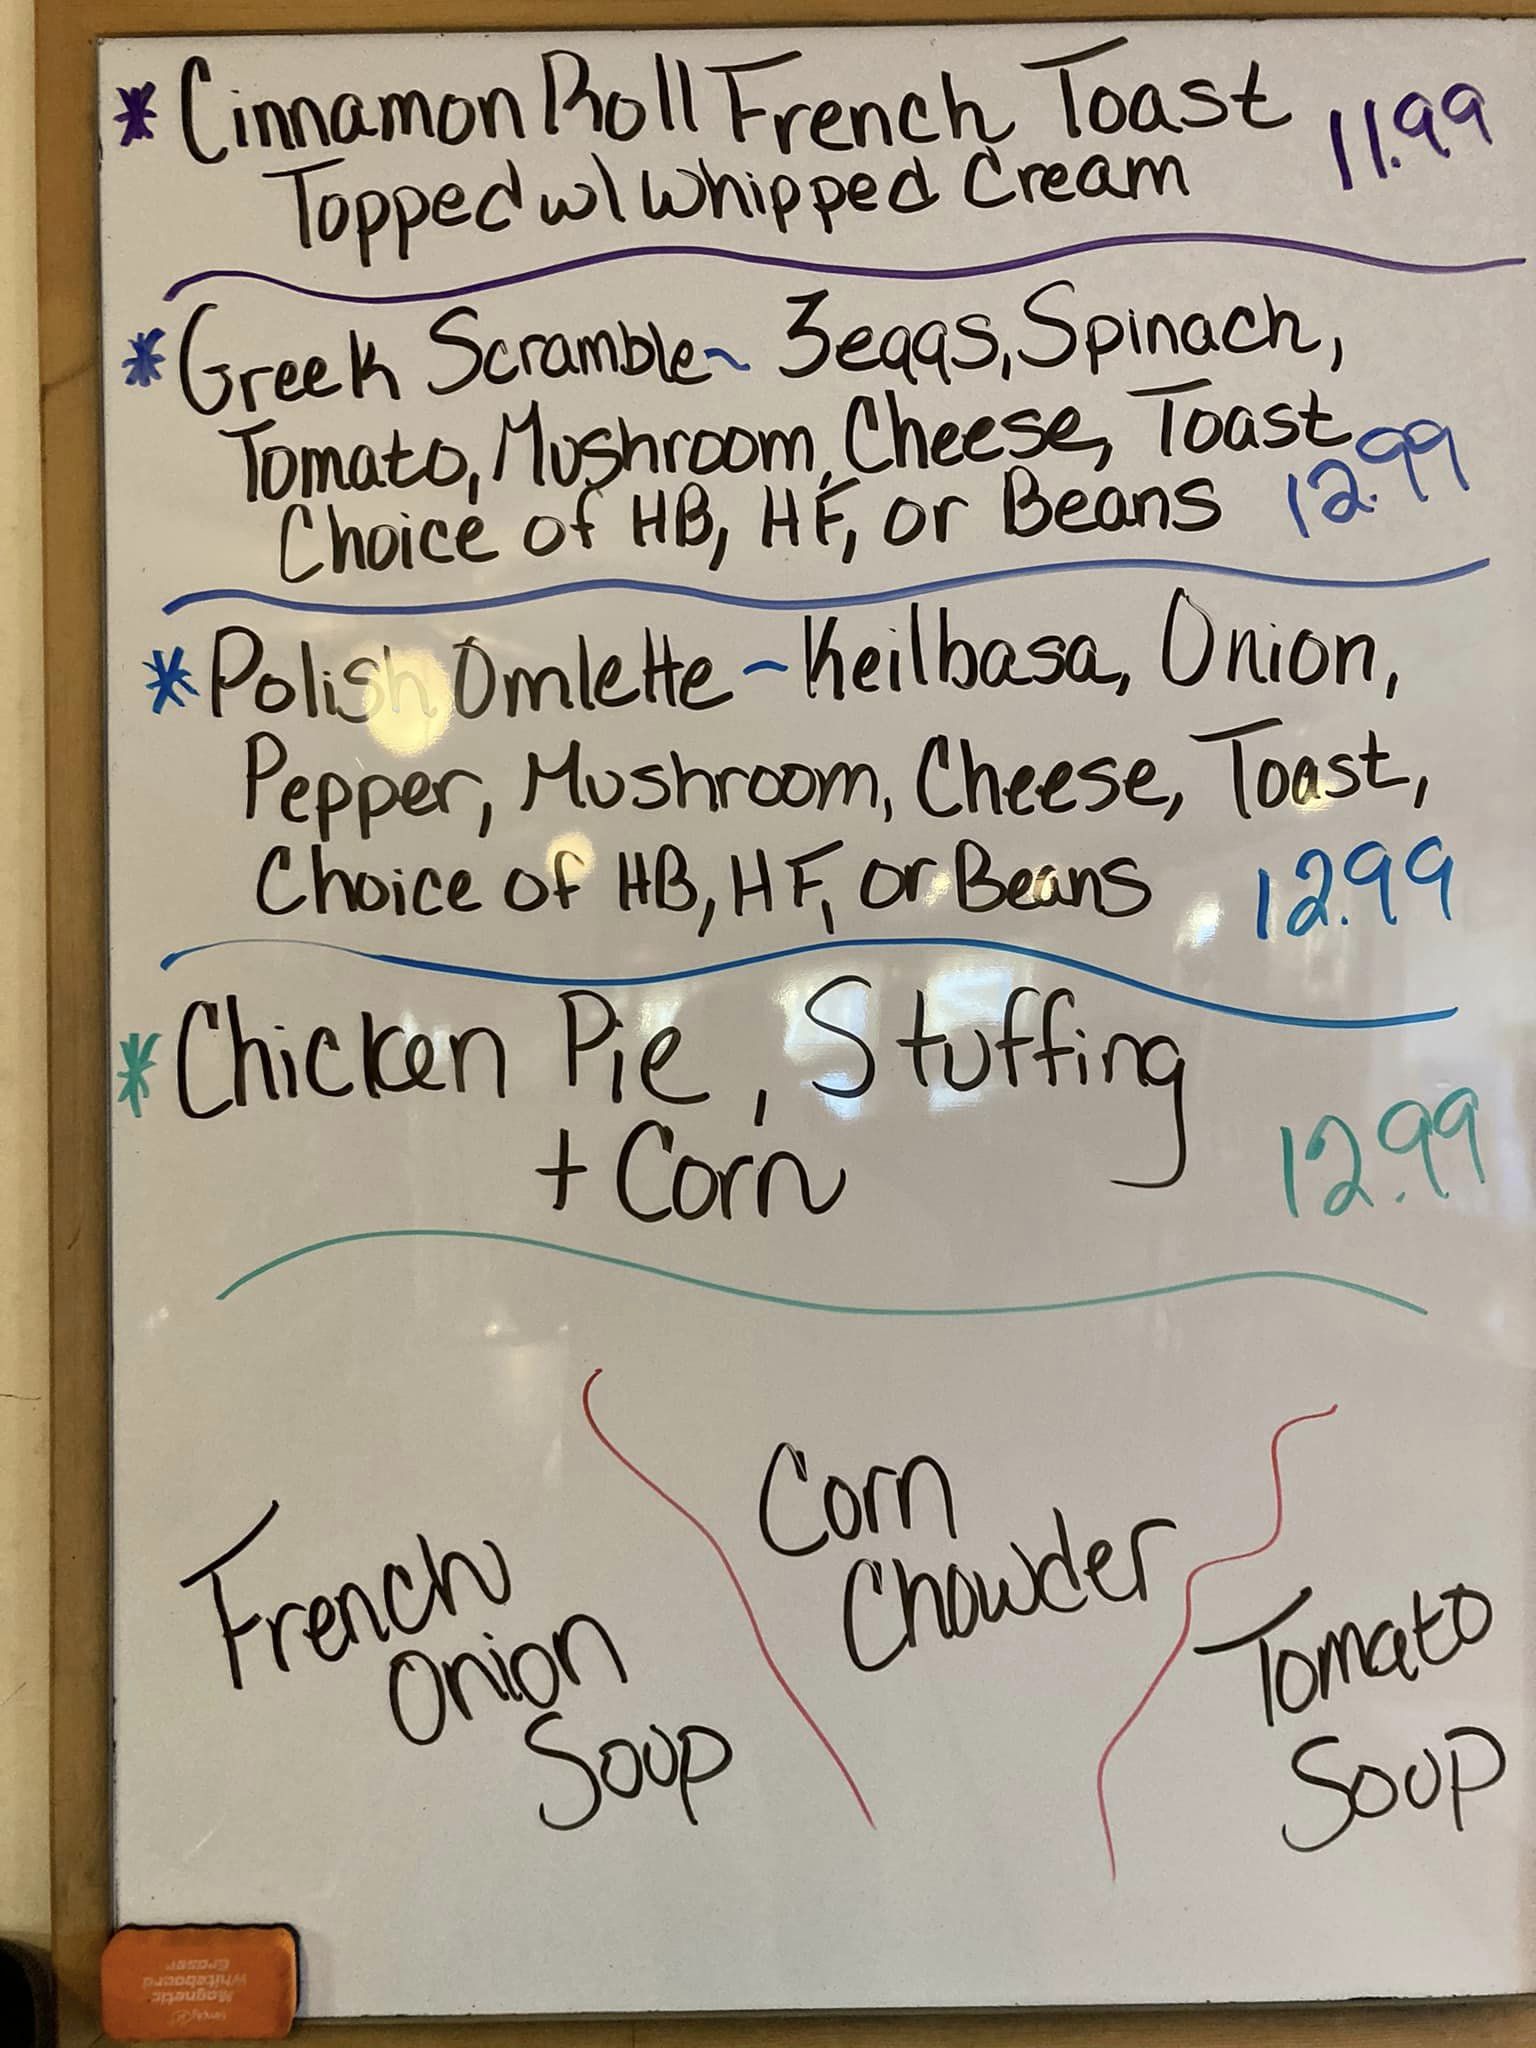 * Cinnamon Roll French Toast 11.99
Topped w/ Whipped Cream
* Greek Scramble ~ 3 eggs, Spinach,
Tomato, Mushroom, Cheese, Toast
Choice of HB, HF, or Beans 12.99
* Polish Omlette ~ Keilbasa, Onion,
Pepper, Mushroom, Cheese, Toast,
Choice of HB, HF, or Beans 12.99
* Chicken Pie, Stuffing
+ Corn 12.99
French
Onion
Soup
Corn
Chowder
Tomato
Soup
simply
Magnetic
Whiteboard
Eraser